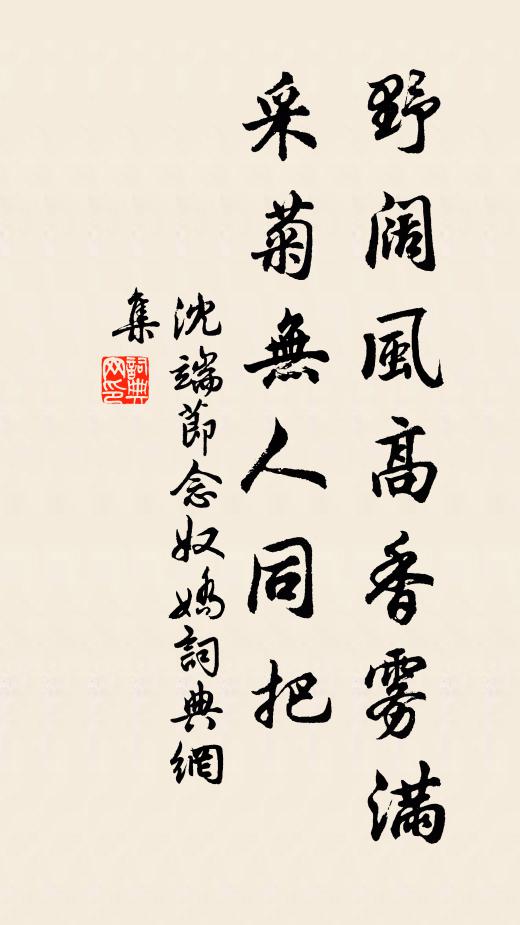 野阔風高香雾满
采菊無人同把
沈端節念奴嬌詞典網
集
詞典网印